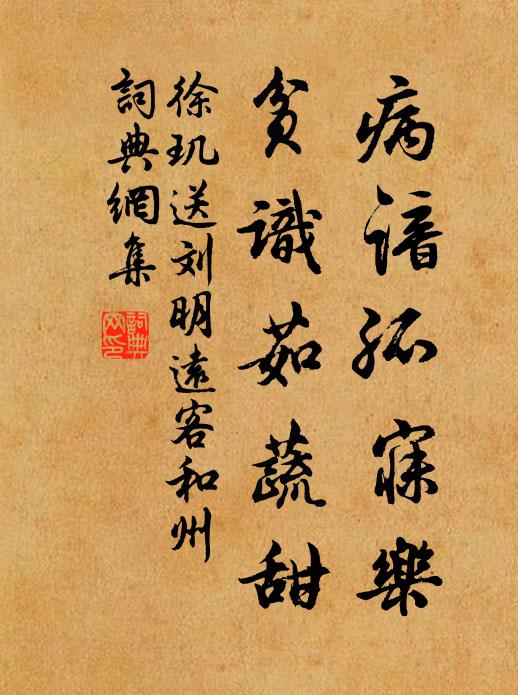 病谙孤寐樂
貧識茹蔬甜
徐玑送刘明遠客和州
詞典網集
詞典網印